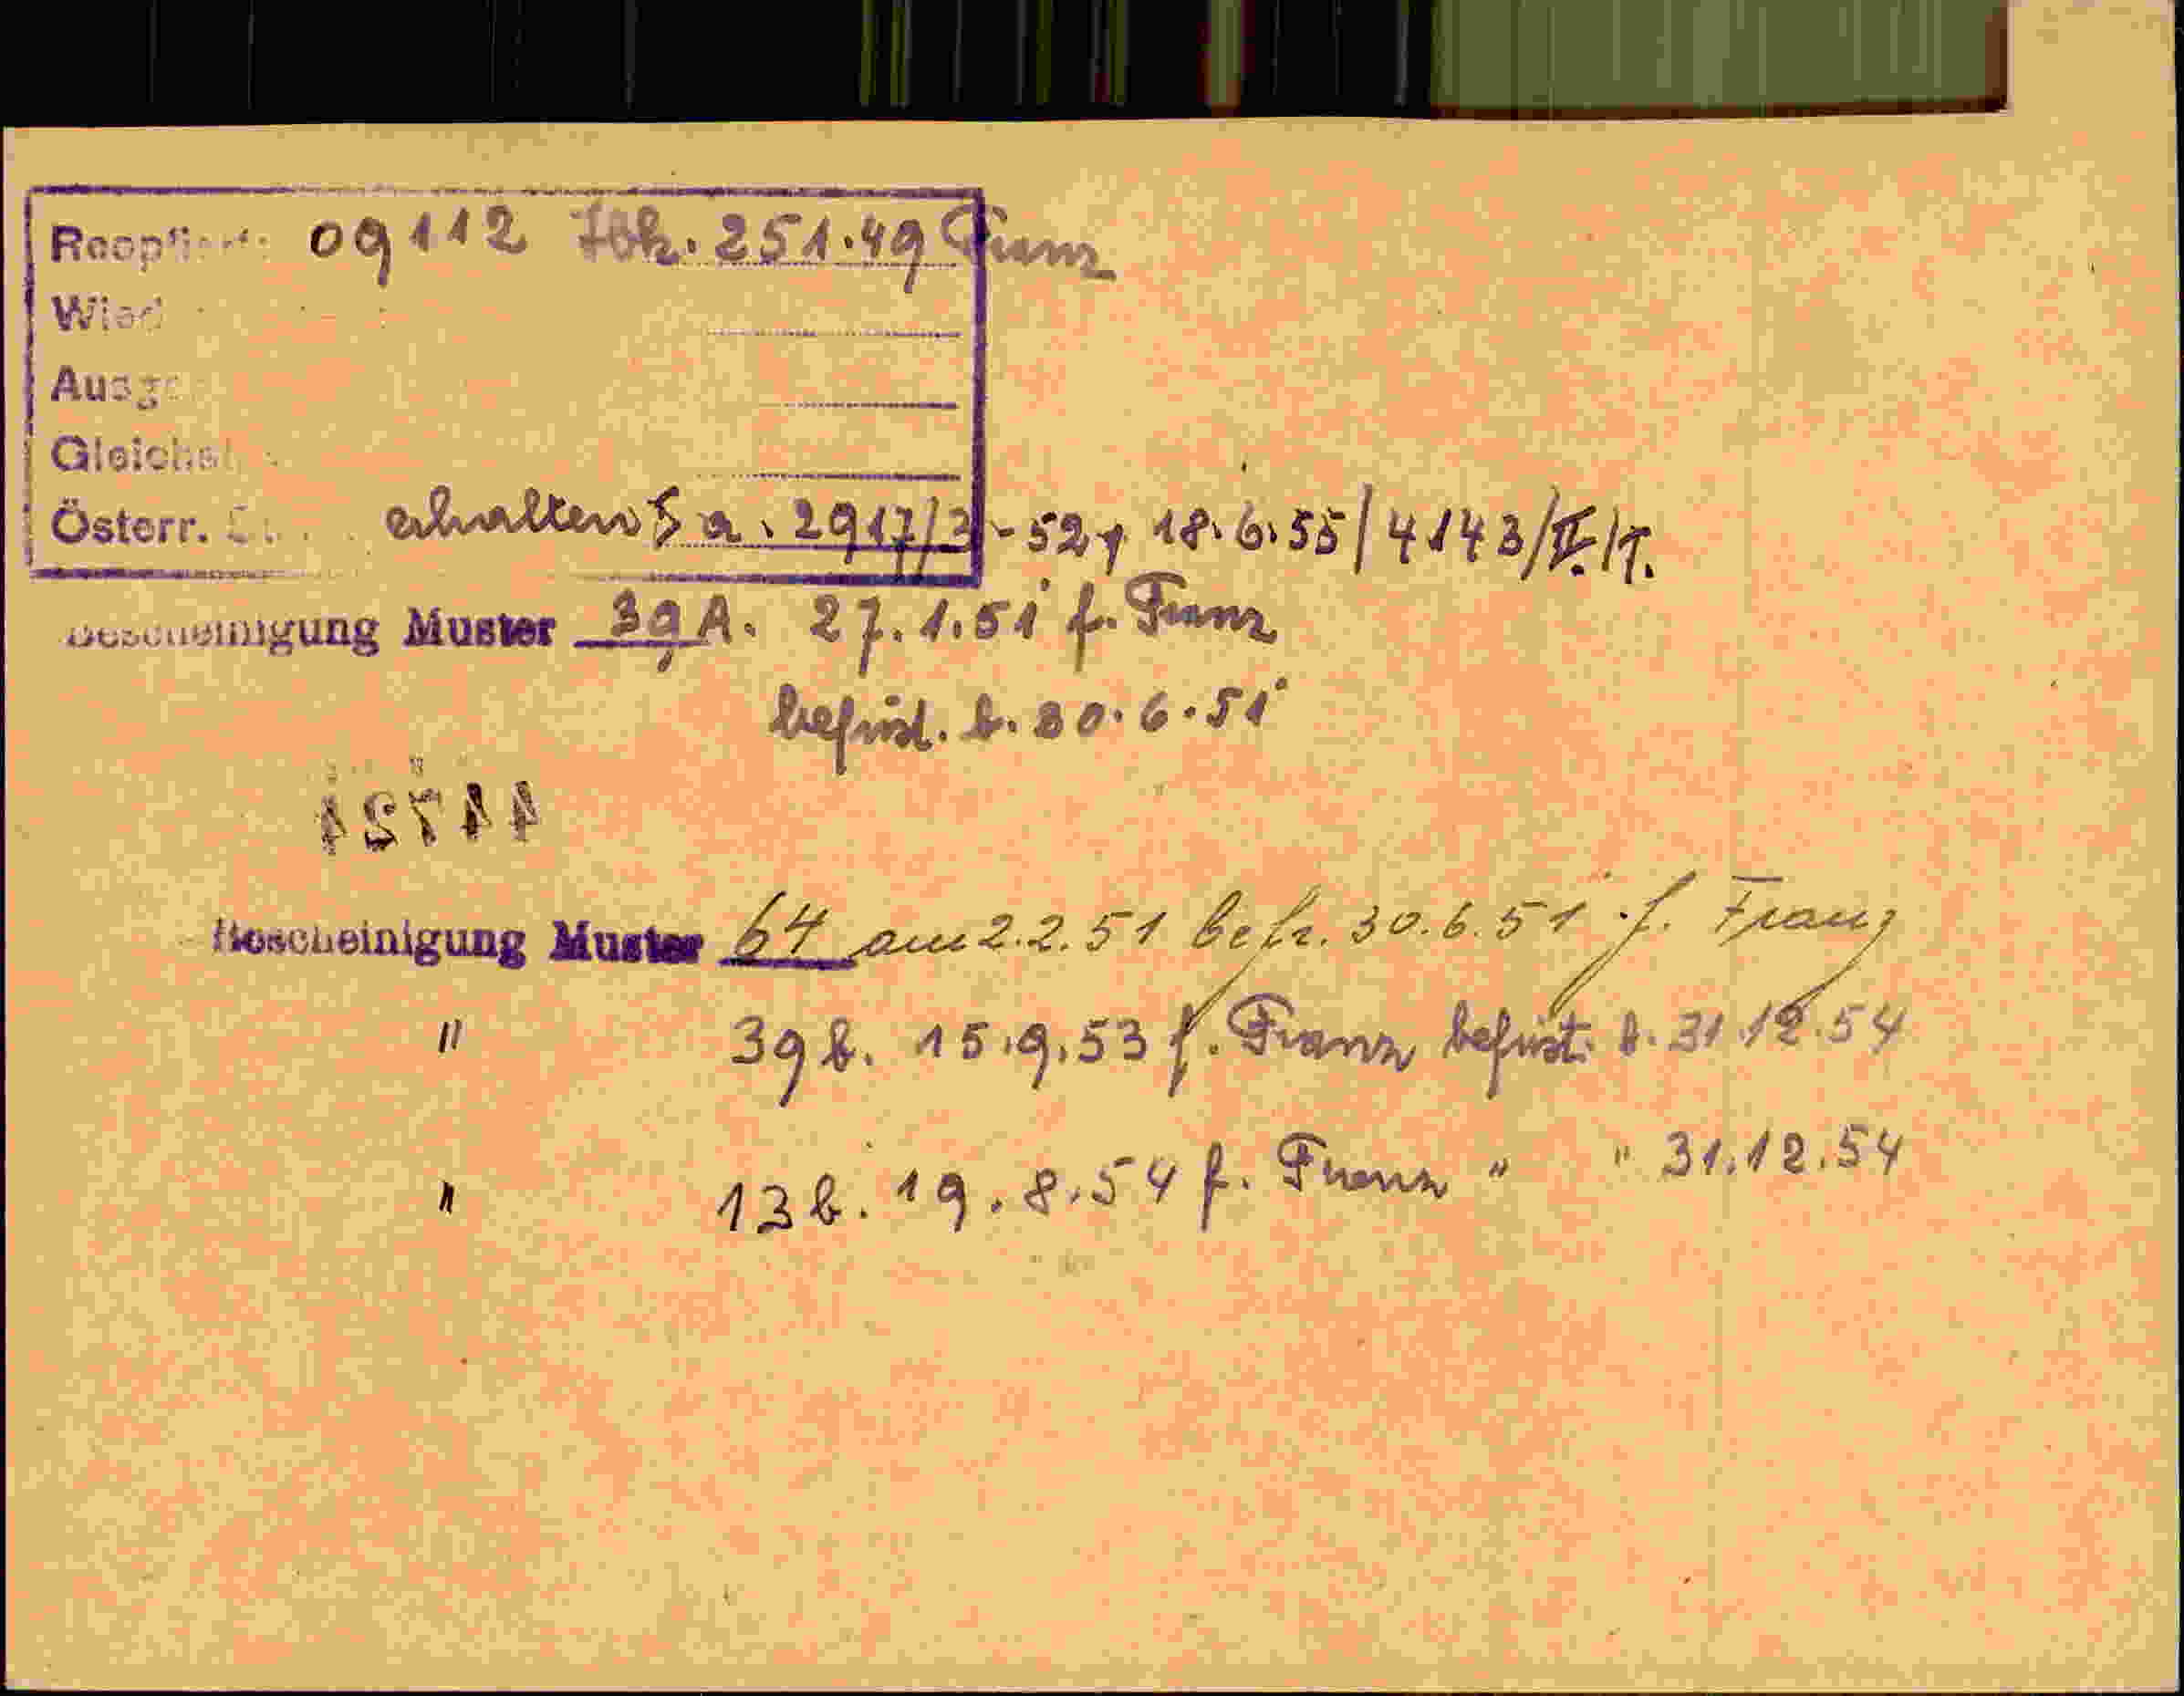 09112 Jbk. 251.49 Franz
Wied
Ausg
Gleich
Österr. erhalten § a. 2917/3-52, 18.6.55/4143/II./T.
Bescheinigung Muster 39A. 27.1.51 f. Franz
befrist. b. 30.6.51
44724
Bescheinigung Muster 64 am 2.2.51 befr. 30.6.51 f. Franz
" 39b. 15.9.53 f. Franz befrist. b. 31.12.54
" 13b. 19.8.54 f. Franz " " 31.12.54